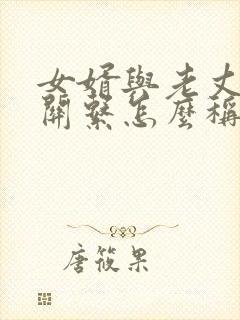 女婿與老丈
關繫怎麼稱
唐筱果